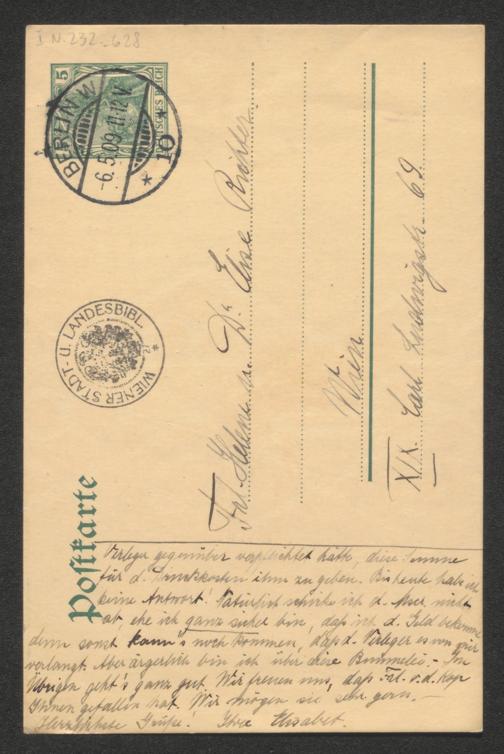 I.N. 232.628
5
DEUTSCHES REICH
BERLIN W
-6.5.09.11-12V.
* 10 *
WIENER STADT- U. LANDESBIBL.
Postkarte
Frl. Helene u. Dr. Elise Richter
Wien
XIX. Carl Ludwigstr. 69
Verleger gegenüber verpflichtet hätte, diese Summe
für d. Druckkosten ihm zu geben. Bis heute hab ich
keine Antwort! Natürlich schicke ich d. nicht
ab, ehe ich ganz sicher bin, daß ich d. Geld bekomme
denn sonst kann's noch kommen, daß d. Verleger es von mir
verlangt. Aber ärgerlich bin ich über diese Bummelei. - Im
Übrigen geht's ganz gut. Wir freuen uns, daß Frl. v. d.
Ihnen gefallen hat. Wir mögen sie sehr gern. -
Herzlichste Grüße! Ihre